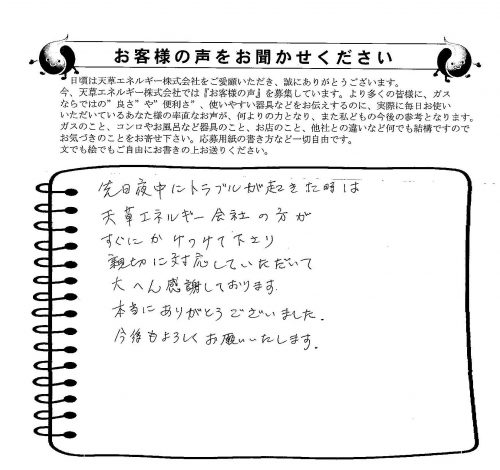 お客様の声をお聞かせください
日頃は天草エネルギー株式会社をご愛顧いただき、誠にありがとうございます。
今、天草エネルギー株式会社では『お客様の声』を募集しています。より多くの皆様に、ガス
ならではの”良さ”や”便利さ”、使いやすい器具などをお伝えするのに、実際に毎日お使い
いただいているあなた様の率直なお声が、何よりの力となり、また私どもの今後の参考となります。
ガスのこと、コンロやお風呂など器具のこと、お店のこと、他社との違いなど何でも結構ですので
お気づきのことをお寄せ下さい。応募用紙の書き方など一切自由です。
文でも絵でもご自由にお書きの上お送りください。
先日夜中にトラブルが起きた時は
天草エネルギー会社の方が
すぐにかけつけて下さり
親切に対応していただいて
大へん感謝しております.
本当にありがとうございました.
今後もよろしくお願いいたします.